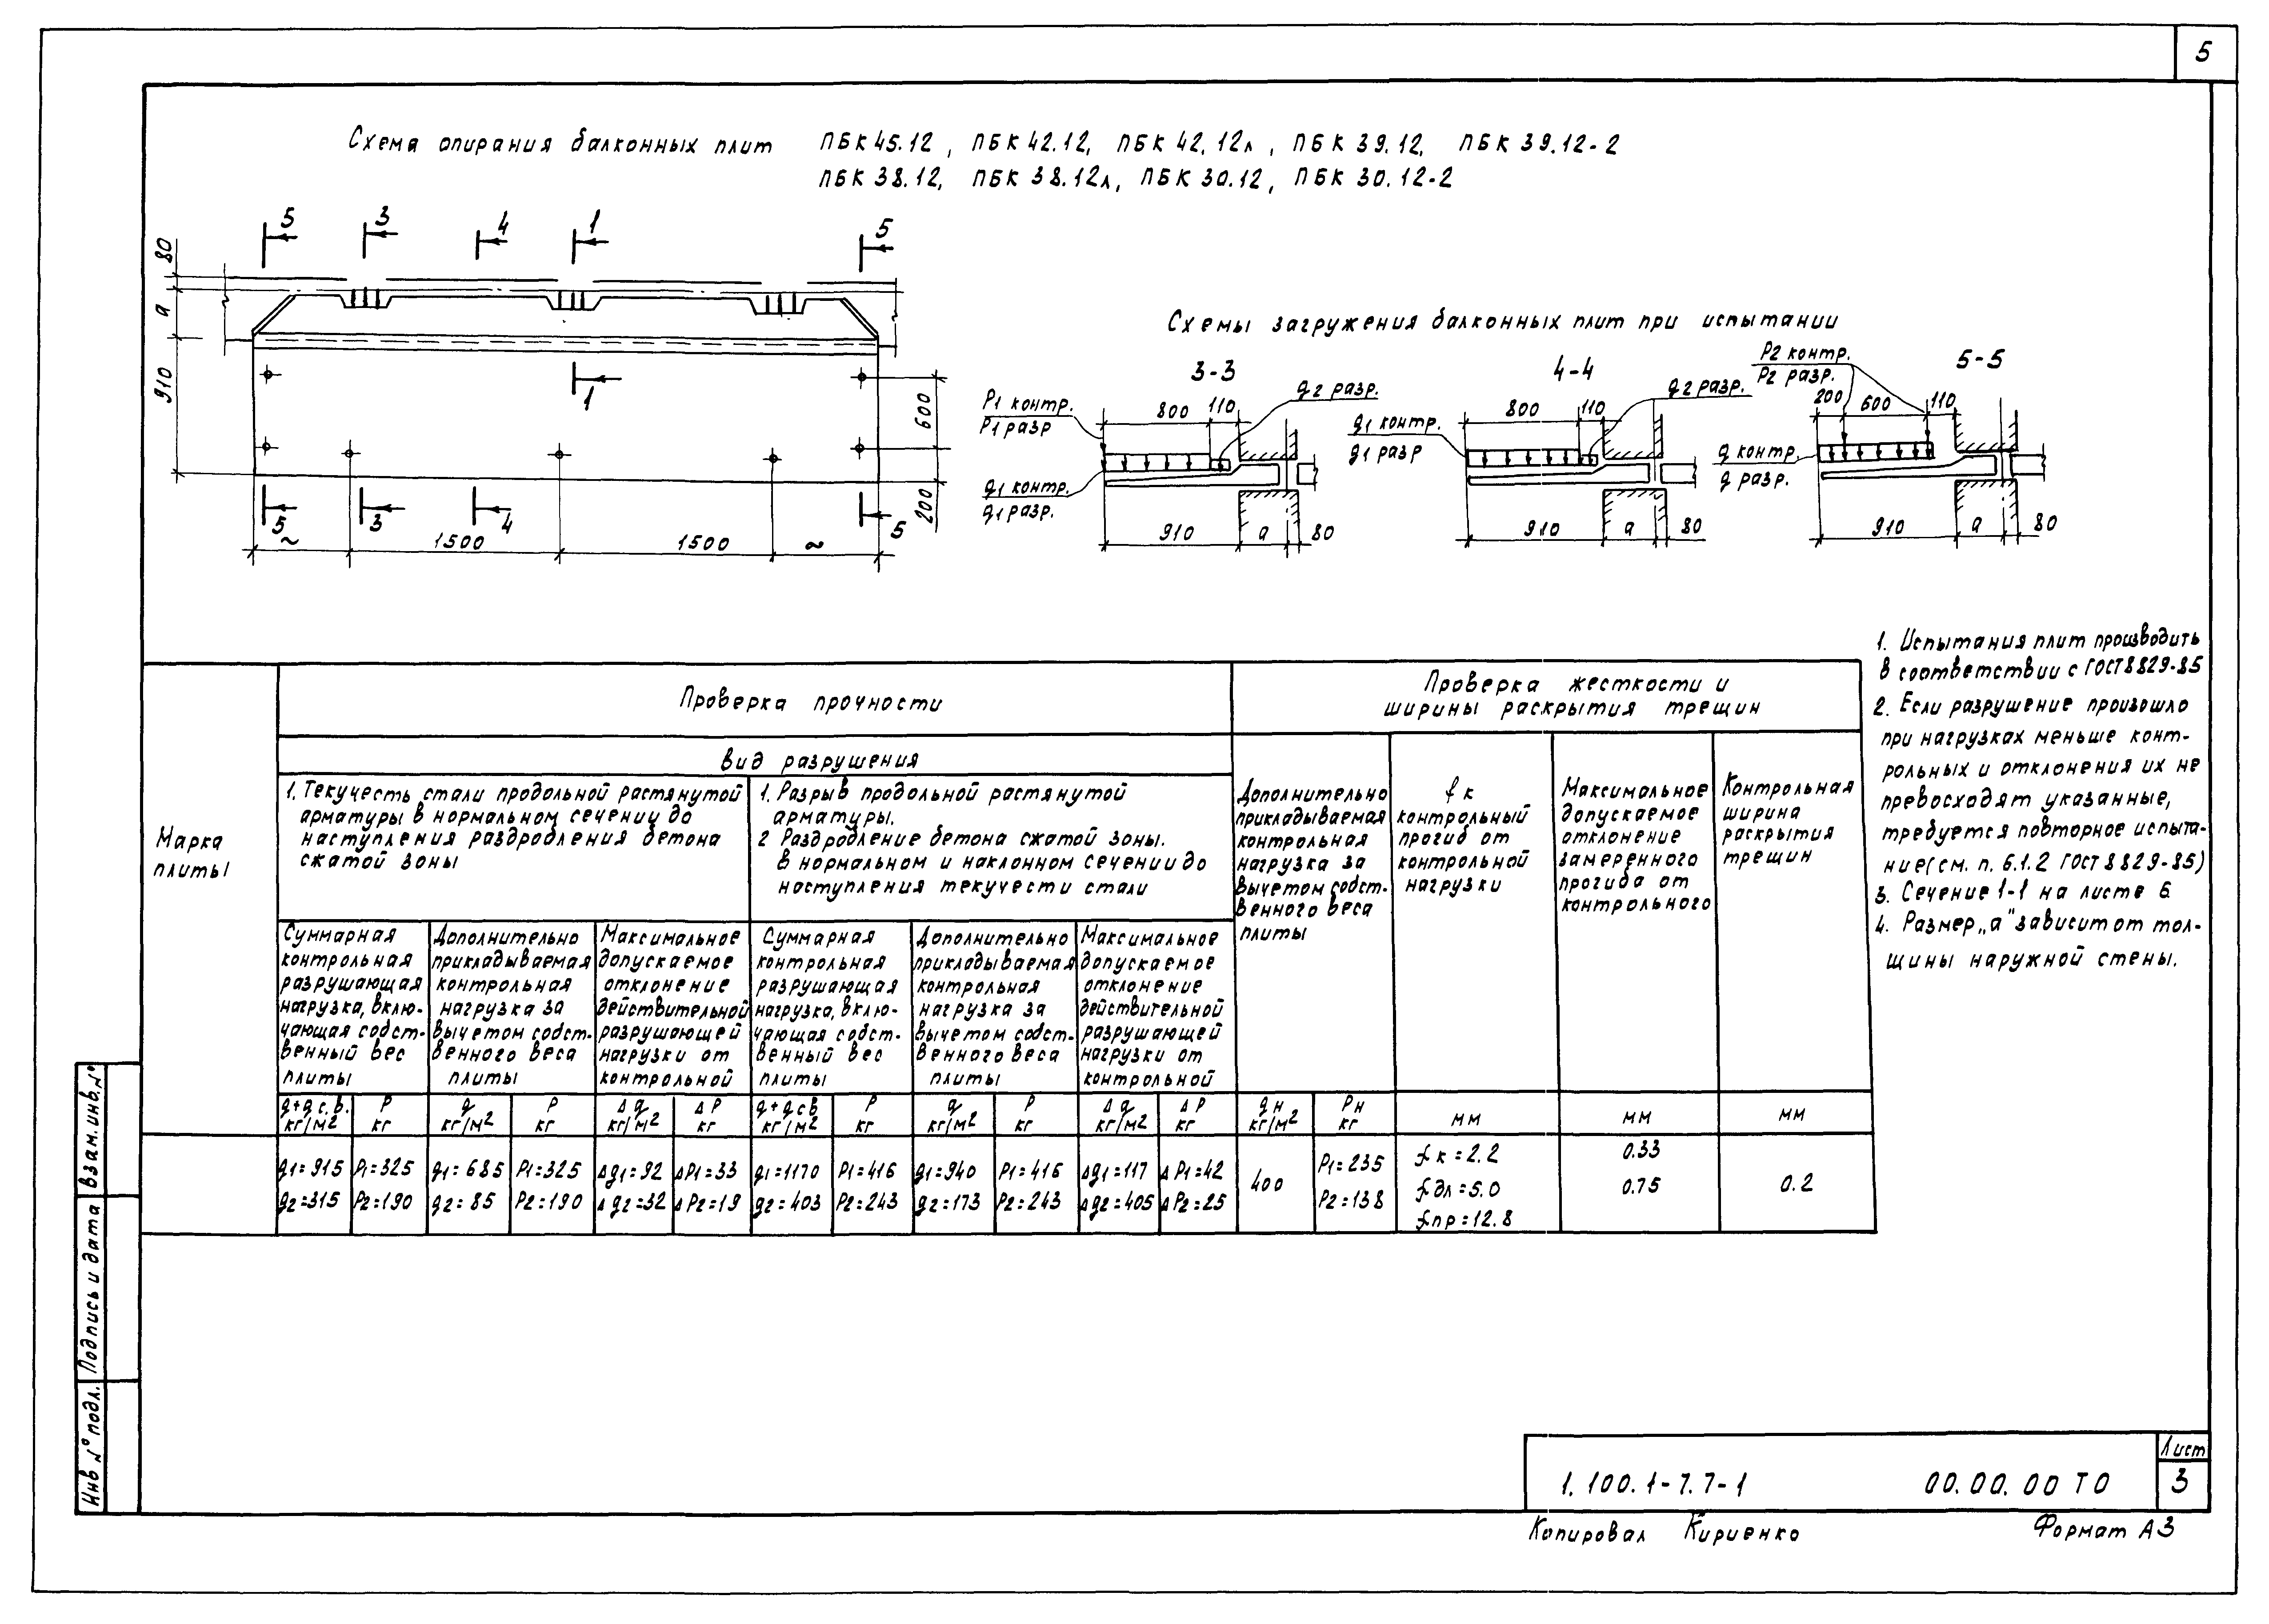 5
Схема опирания балконных плит ПБК 45.12, ПБК 42.12, ПБК 42.12л, ПБК 39.12, ПБК 39.12-2
ПБК 38.12, ПБК 38.12л, ПБК 30.12, ПБК 30.12-2
5 3 4 1 5
80
а
910
1
600
200
5 3 4 5
~ 1500 1500 ~
Схемы загружения балконных плит при испытании
3-3
Р1 контр.
Р1 разр
800 110
q2 разр.
q1 контр.
q1 разр.
910 а 80
4-4
q1 контр.
q1 разр
800 110
q2 разр.
910 а 80
5-5
Р2 контр.
Р2 разр.
200 600 110
q контр.
q разр.
910 а 80
1. Испытания плит производить
в соответствии с ГОСТ 8829-85
2. Если разрушение произошло
при нагрузках меньше конт-
рольных и отклонения их не
превосходят указанные,
требуется повторное испыта-
ние(см. п. 6.1.2 ГОСТ 8829-85)
3. Сечение 1-1 на листе 6
4. Размер „а" зависит от тол-
щины наружной стены.
Марка
плиты
Проверка прочности
Вид разрушения
1. Текучесть стали продольной растянутой
арматуры в нормальном сечении до
наступления раздробления бетона
сжатой зоны
1. Разрыв продольной растянутой
арматуры.
2 Раздробление бетона сжатой зоны.
в нормальном и наклонном сечении до
наступления текучести стали
Суммарная
контрольная
разрушающая
нагрузка, вклю-
чающая собст-
венный вес
плиты
Дополнительно
прикладываемая
контрольная
нагрузка за
вычетом собст-
венного веса
плиты
Максимальное
допускаемое
отклонение
действительной
разрушающей
нагрузки от
контрольной
Суммарная
контрольная
разрушающая
нагрузка, вклю-
чающая собст-
венный вес
плиты
Дополнительно
прикладываемая
контрольная
нагрузка за
вычетом собст-
венного веса
плиты
Максимальное
допускаемое
отклонение
действительной
разрушающей
нагрузки от
контрольной
Проверка жесткости и
ширины раскрытия трещин
Дополнительно
прикладываемая
контрольная
нагрузка за
вычетом собст-
венного веса
плиты
fк
контрольный
прогиб от
контрольной
нагрузки
Максимальное
допускаемое
отклонение
замеренного
прогиба от
контрольного
Контрольная
ширина
раскрытия
трещин
q+qс.в. Р q Р Δq ΔР q+qсв Р q Р Δq ΔР qн Рн
кг/м2 кг кг/м2 кг кг/м2 кг кг/м2 кг кг/м2 кг кг/м2 кг кг/м2 кг мм мм мм
q1=915 Р1=325 q1=685 Р1=325 Δq1=92 ΔР1=33 q1=1170 Р1=416 q1=940 Р1=416 Δq1=117 ΔР1=42 400 Р1=235 fк=2.2 0.33 0.2
q2=315 Р2=190 q2=85 Р2=190 Δq2=32 ΔР2=19 q2=403 Р2=243 q2=173 Р2=243 Δq2=405 ΔР2=25 Р2=138 fдл=5.0 0.75
fпр=12.8
Инв № подл. Подпись и дата Взам. инв. №
1.100.1-7.7-1 00.00.00 ТО
Лист
3
Копировал Кириенко Формат А3